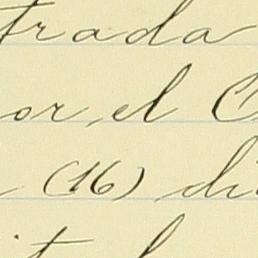 trada
or, el C
(16) di